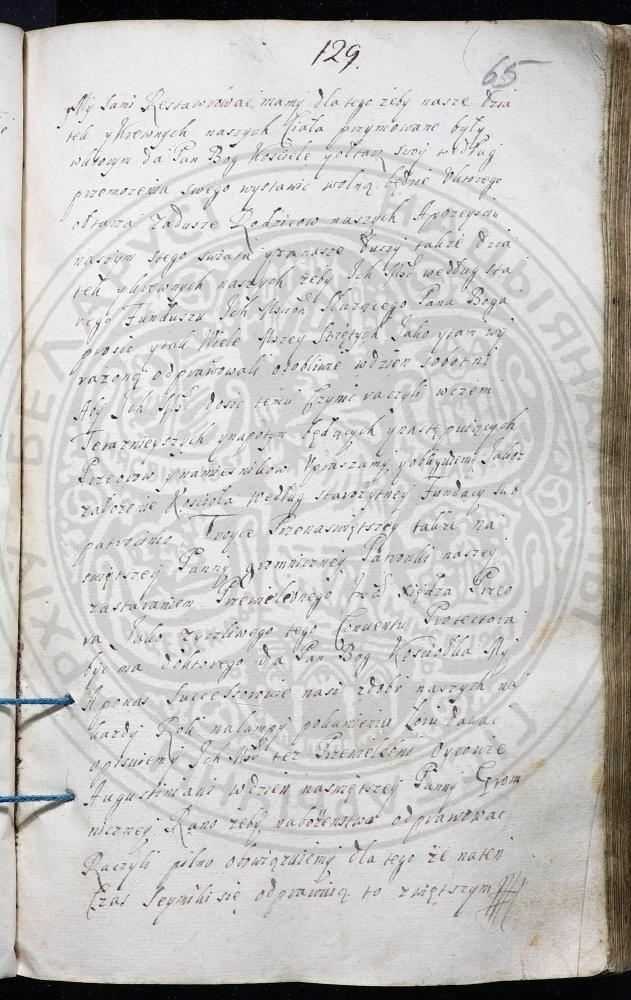 129.
65
My sami Restawrować mamy dla tego zeby nasze dzia
tek y krewnych naszych Ciała przymowane były
w ktorym da Pan Bog Kosciele y ołtarz swoy według
przemozenia swego wystawic wolną będzie U ktorego
ołtarza zadusze Rodzicow naszych A po zeysciu
naszym stego swiata y zanasze duszy takze dzia
tek y krewnych naszych zeby Ich Mść według sta
rego Funduszu Ich Msciow Słuzącego Pana Boga
prosic y tak Wiele Mszey Swiętych Jako y tam wy
razono odprawowali osobliwie wdzien Sobotni
Aby Ich Mść dosic temu Czynic raczyli wczem
Terazniejszych y napotym będących y nastę puiących
Przeorow y namiesnikow Upraszamy y obliguiemy Jakosz
załozenie Kosciola Według starozytney Fundacy sub
patrocinio Troyce Przenaswiętszey takze na
swiętszey Panny gromniczney Patronki naszey
zastaraniem Przewielebnego Jmść xiędza Przeo
ra Jako zyczliwego tego Conventu Protectora
byc ma doktorego da Pan Bog Kosciołka My
A ponas Successorowie nasi zdobr naszych na
kazdy Rok nalampy pokamieniu Łoiu dawac
opisuiemy Ich Mść tez Przewielebni Oycowie
Augustiniani wdzien naswiętszey Panny Grom
niczney Rano zeby nabozenstwa odprawowac
Raczyli pilno obowiązuiemy dla tego ze naten
Czas Seymiki się odprawuią to zwiętszym